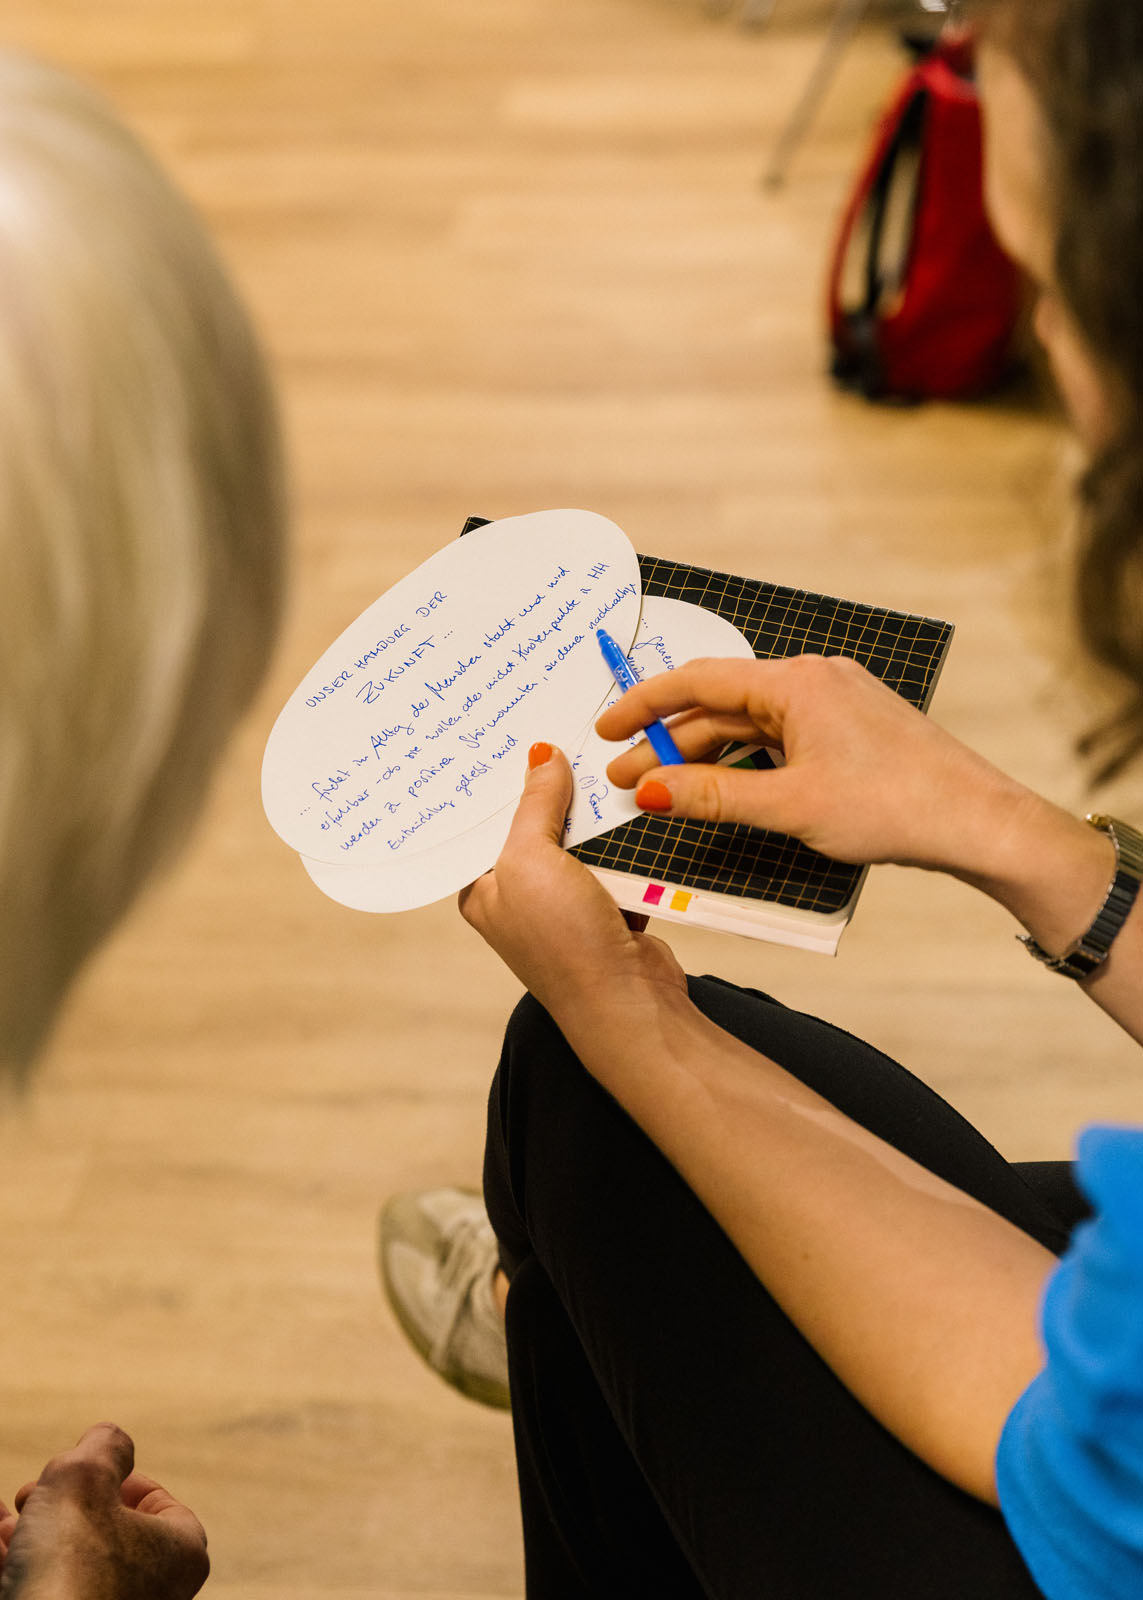 UNSER HAMBURG DER
ZUKUNFT ...
... findet im Alltag der Menschen statt und wird
erfahrbar - ob sie wollen oder nicht. Knotenpunkte in HH
werden zu positiven Störmomenten, an denen nachhaltige
Entwicklung gelebt wird
...